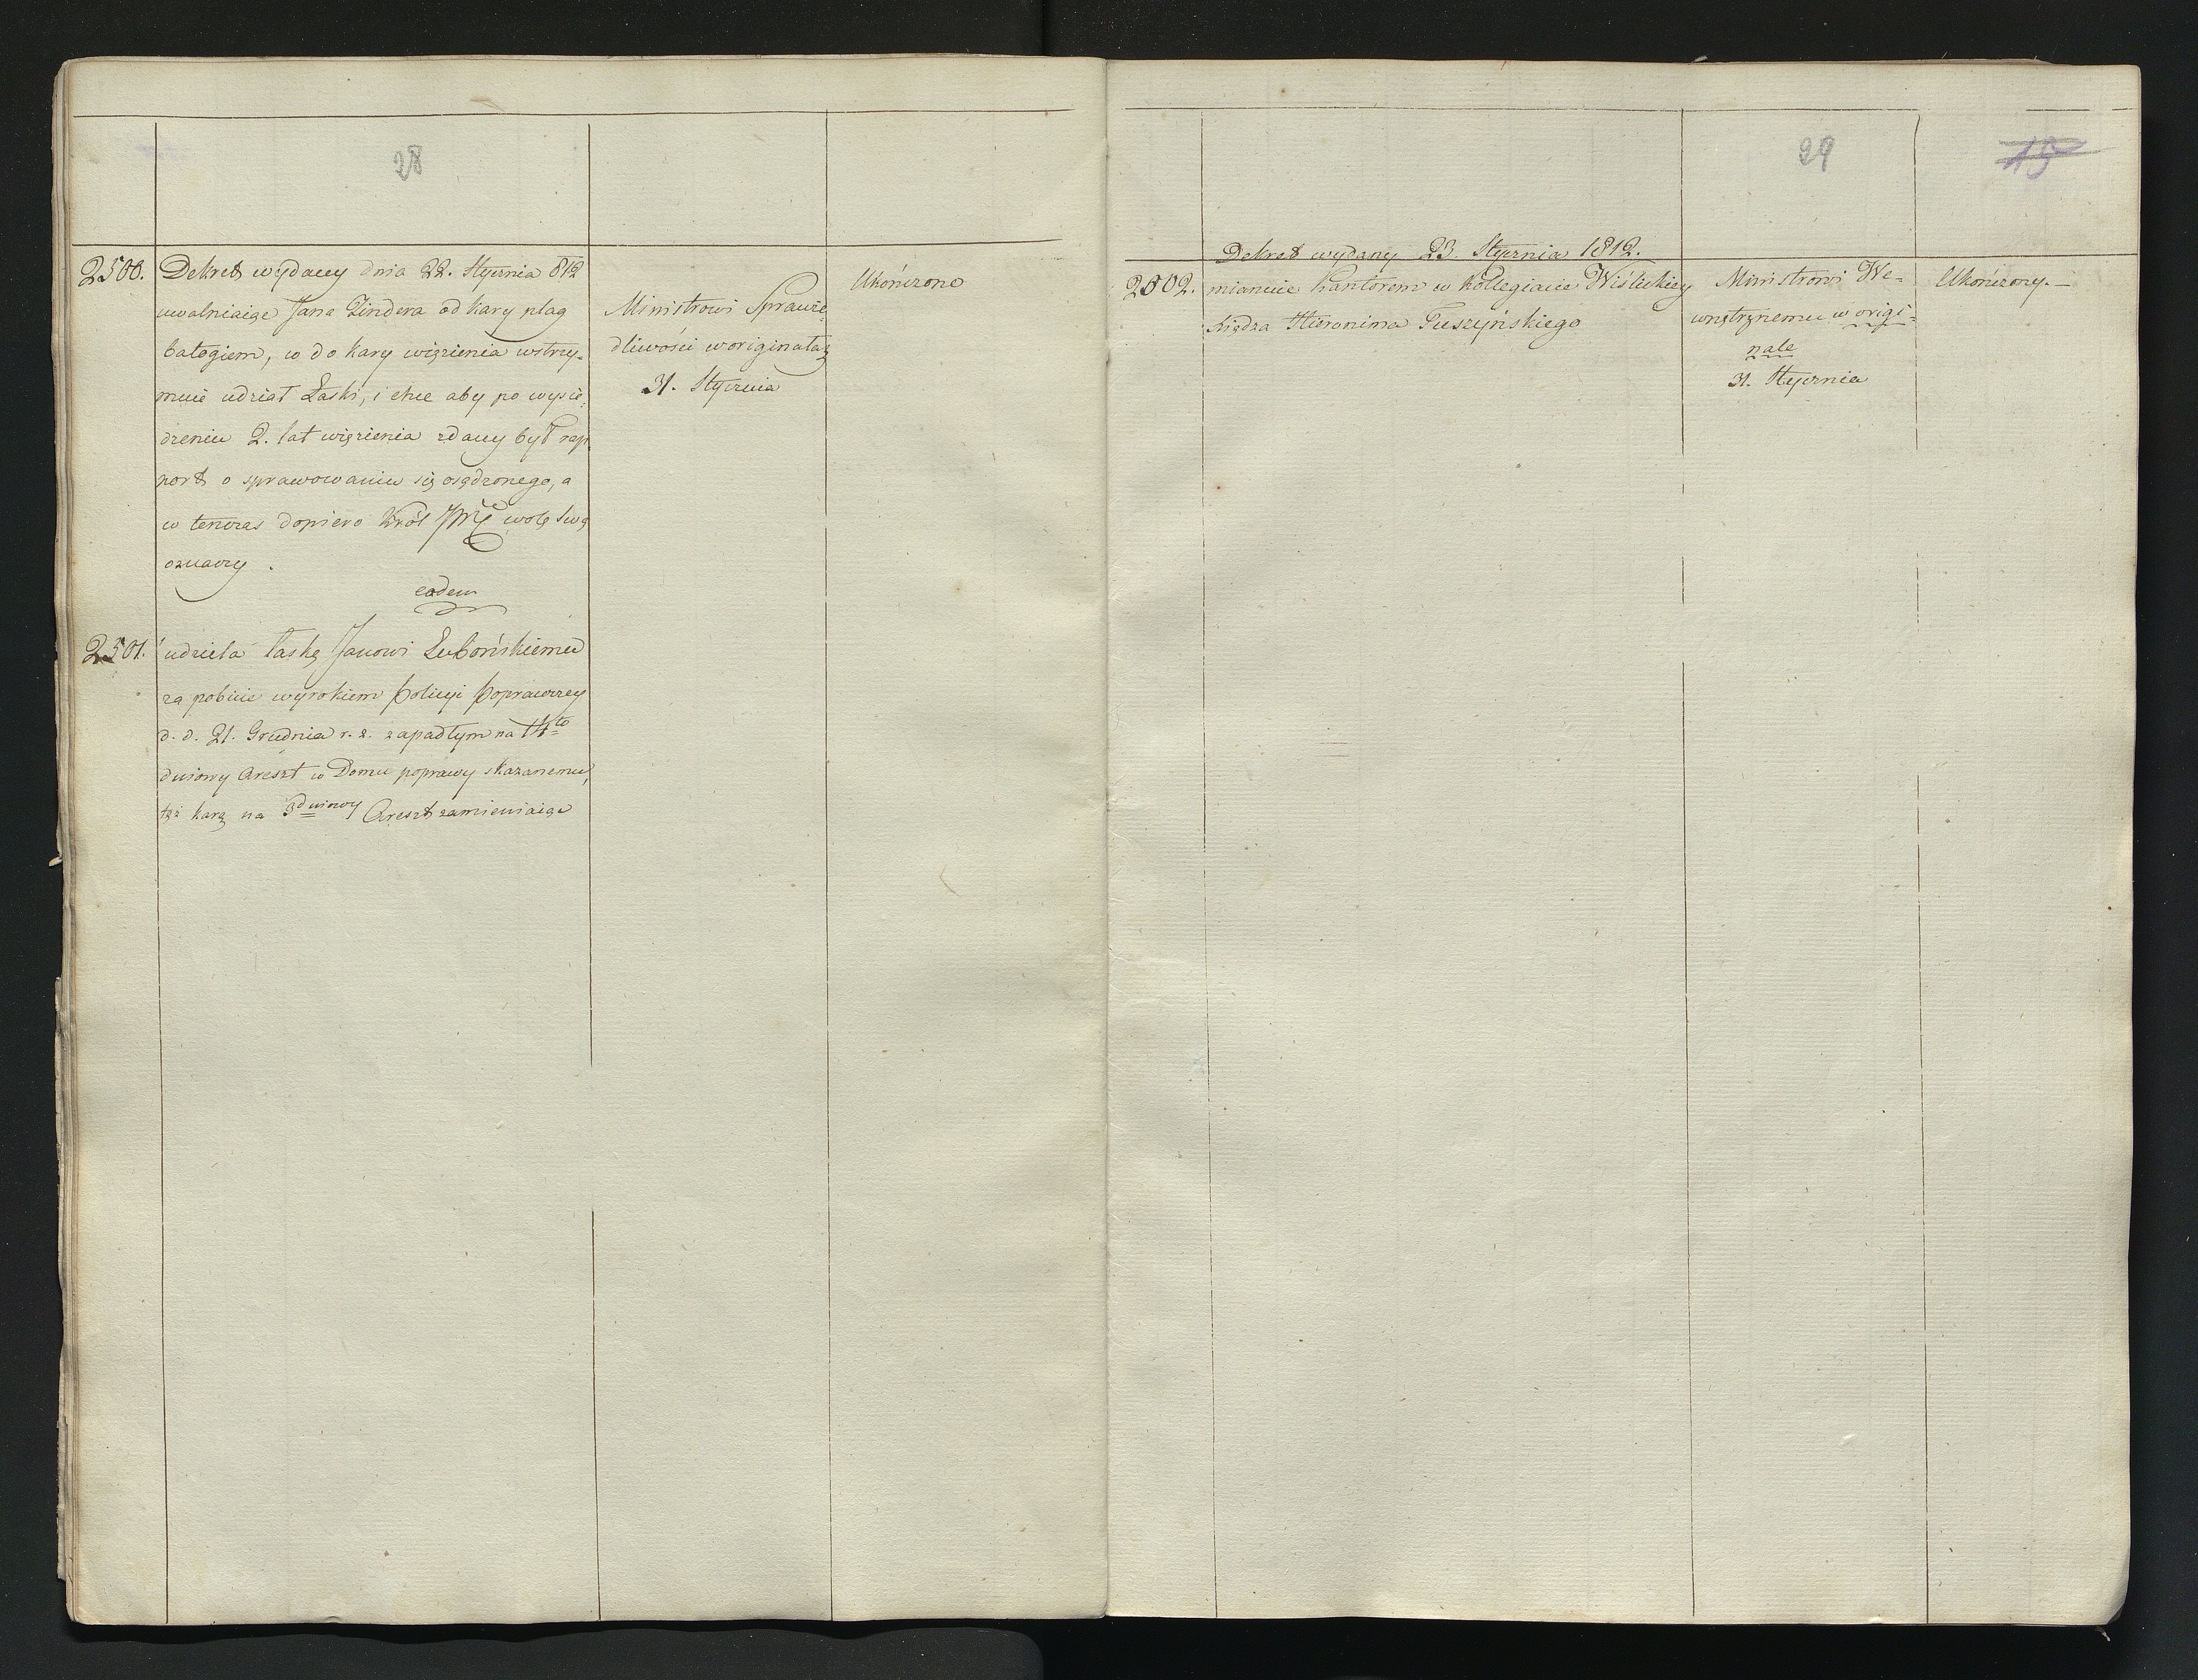 28
2500. Dekret wydany dnia 22. Stycznia 812
uwalniaiąc Jana Lindera od kary plag
batogiem, co do kary więzienia wstrzy-
muie udział Łaski, i chce aby po wysie-
dzeniu 2. lat więzienia zdany był rap-
port o sprawowaniu się osądzonego, a
w tenczas dopiero Król JMć wolę swą
oznaczy.
Ministrowi Sprawie-
dliwości w originałaz
31. Stycznia
Ukończono
eadem
2501. udziela łaskę Janowi Lubońskiemu
za pobicie wyrokiem Policyi Poprawczey
d. d. 21. Grudnia r. z. zapadłym na 14to
dniowy Areszt w Domu poprawy skazanemu,
też karę na 3dniowy Areszt zamieniaiąc
29
15
Dekret wydany 23. Stycznia 1812.
2502. mianuie Kantorem w Kollegiacie Wiślickiey
Xiędza Hieronima Tuszyńskiego
Ministrowi We-
wnętrznemu w origi-
nale
31. Stycznia
Ukończony.—